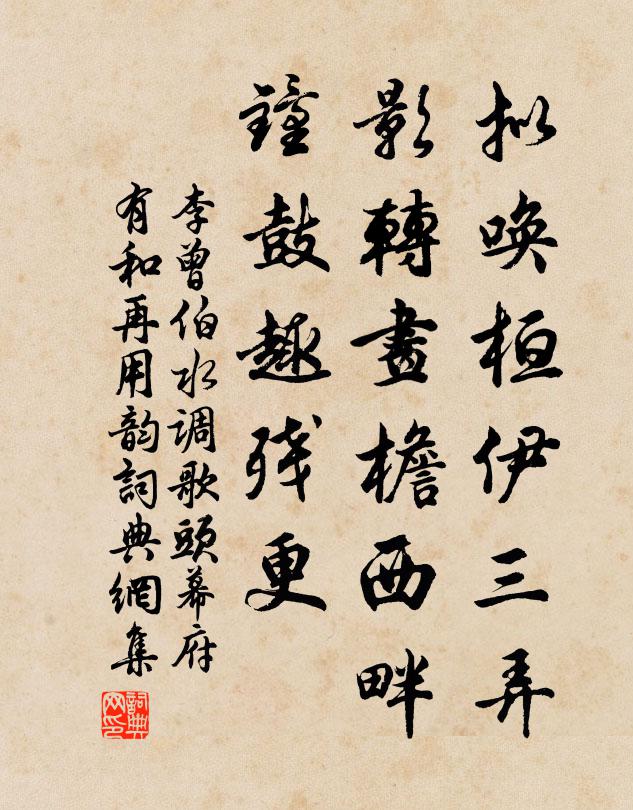 拟唤桓伊三弄
影轉畫檐西畔
鐘鼓趣残更
李曾伯水调歌頭幕府
有和再用韵詞典網集
詞典网印